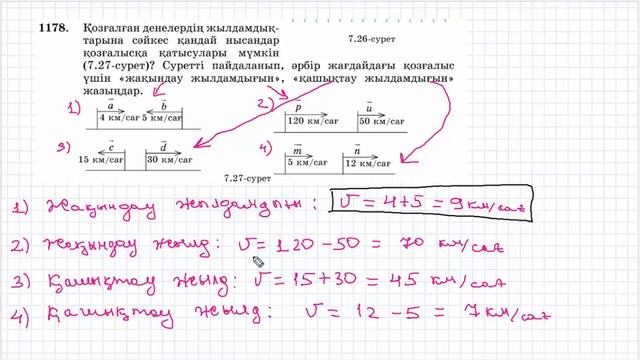 1178. Қозғалған денелердің жылдамдық-
тарына сәйкес қандай нысандар
қозғалысқа қатысулары мүмкін
(7.27-сурет)? Суретті пайдаланып, әрбір жағдайдағы қозғалыс
үшін «жақындау жылдамдығын», «қашықтау жылдамдығын»
жазыңдар.
7.26-сурет
1) a b
4 км/сағ 5 км/сағ
2) p u
120 км/сағ 50 км/сағ
3) c d
15 км/сағ 30 км/сағ
4) m n
5 км/сағ 12 км/сағ
7.27-сурет
1) Жақындау жылдамдығы: v = 4+5 = 9 км/сағ
2) Жақындау жылд: v = 120 - 50 = 70 км/сағ
3) Қашықтау жылд: v = 15 + 30 = 45 км/сағ
4) Қашықтау жылд: v = 12 - 5 = 7 км/сағ